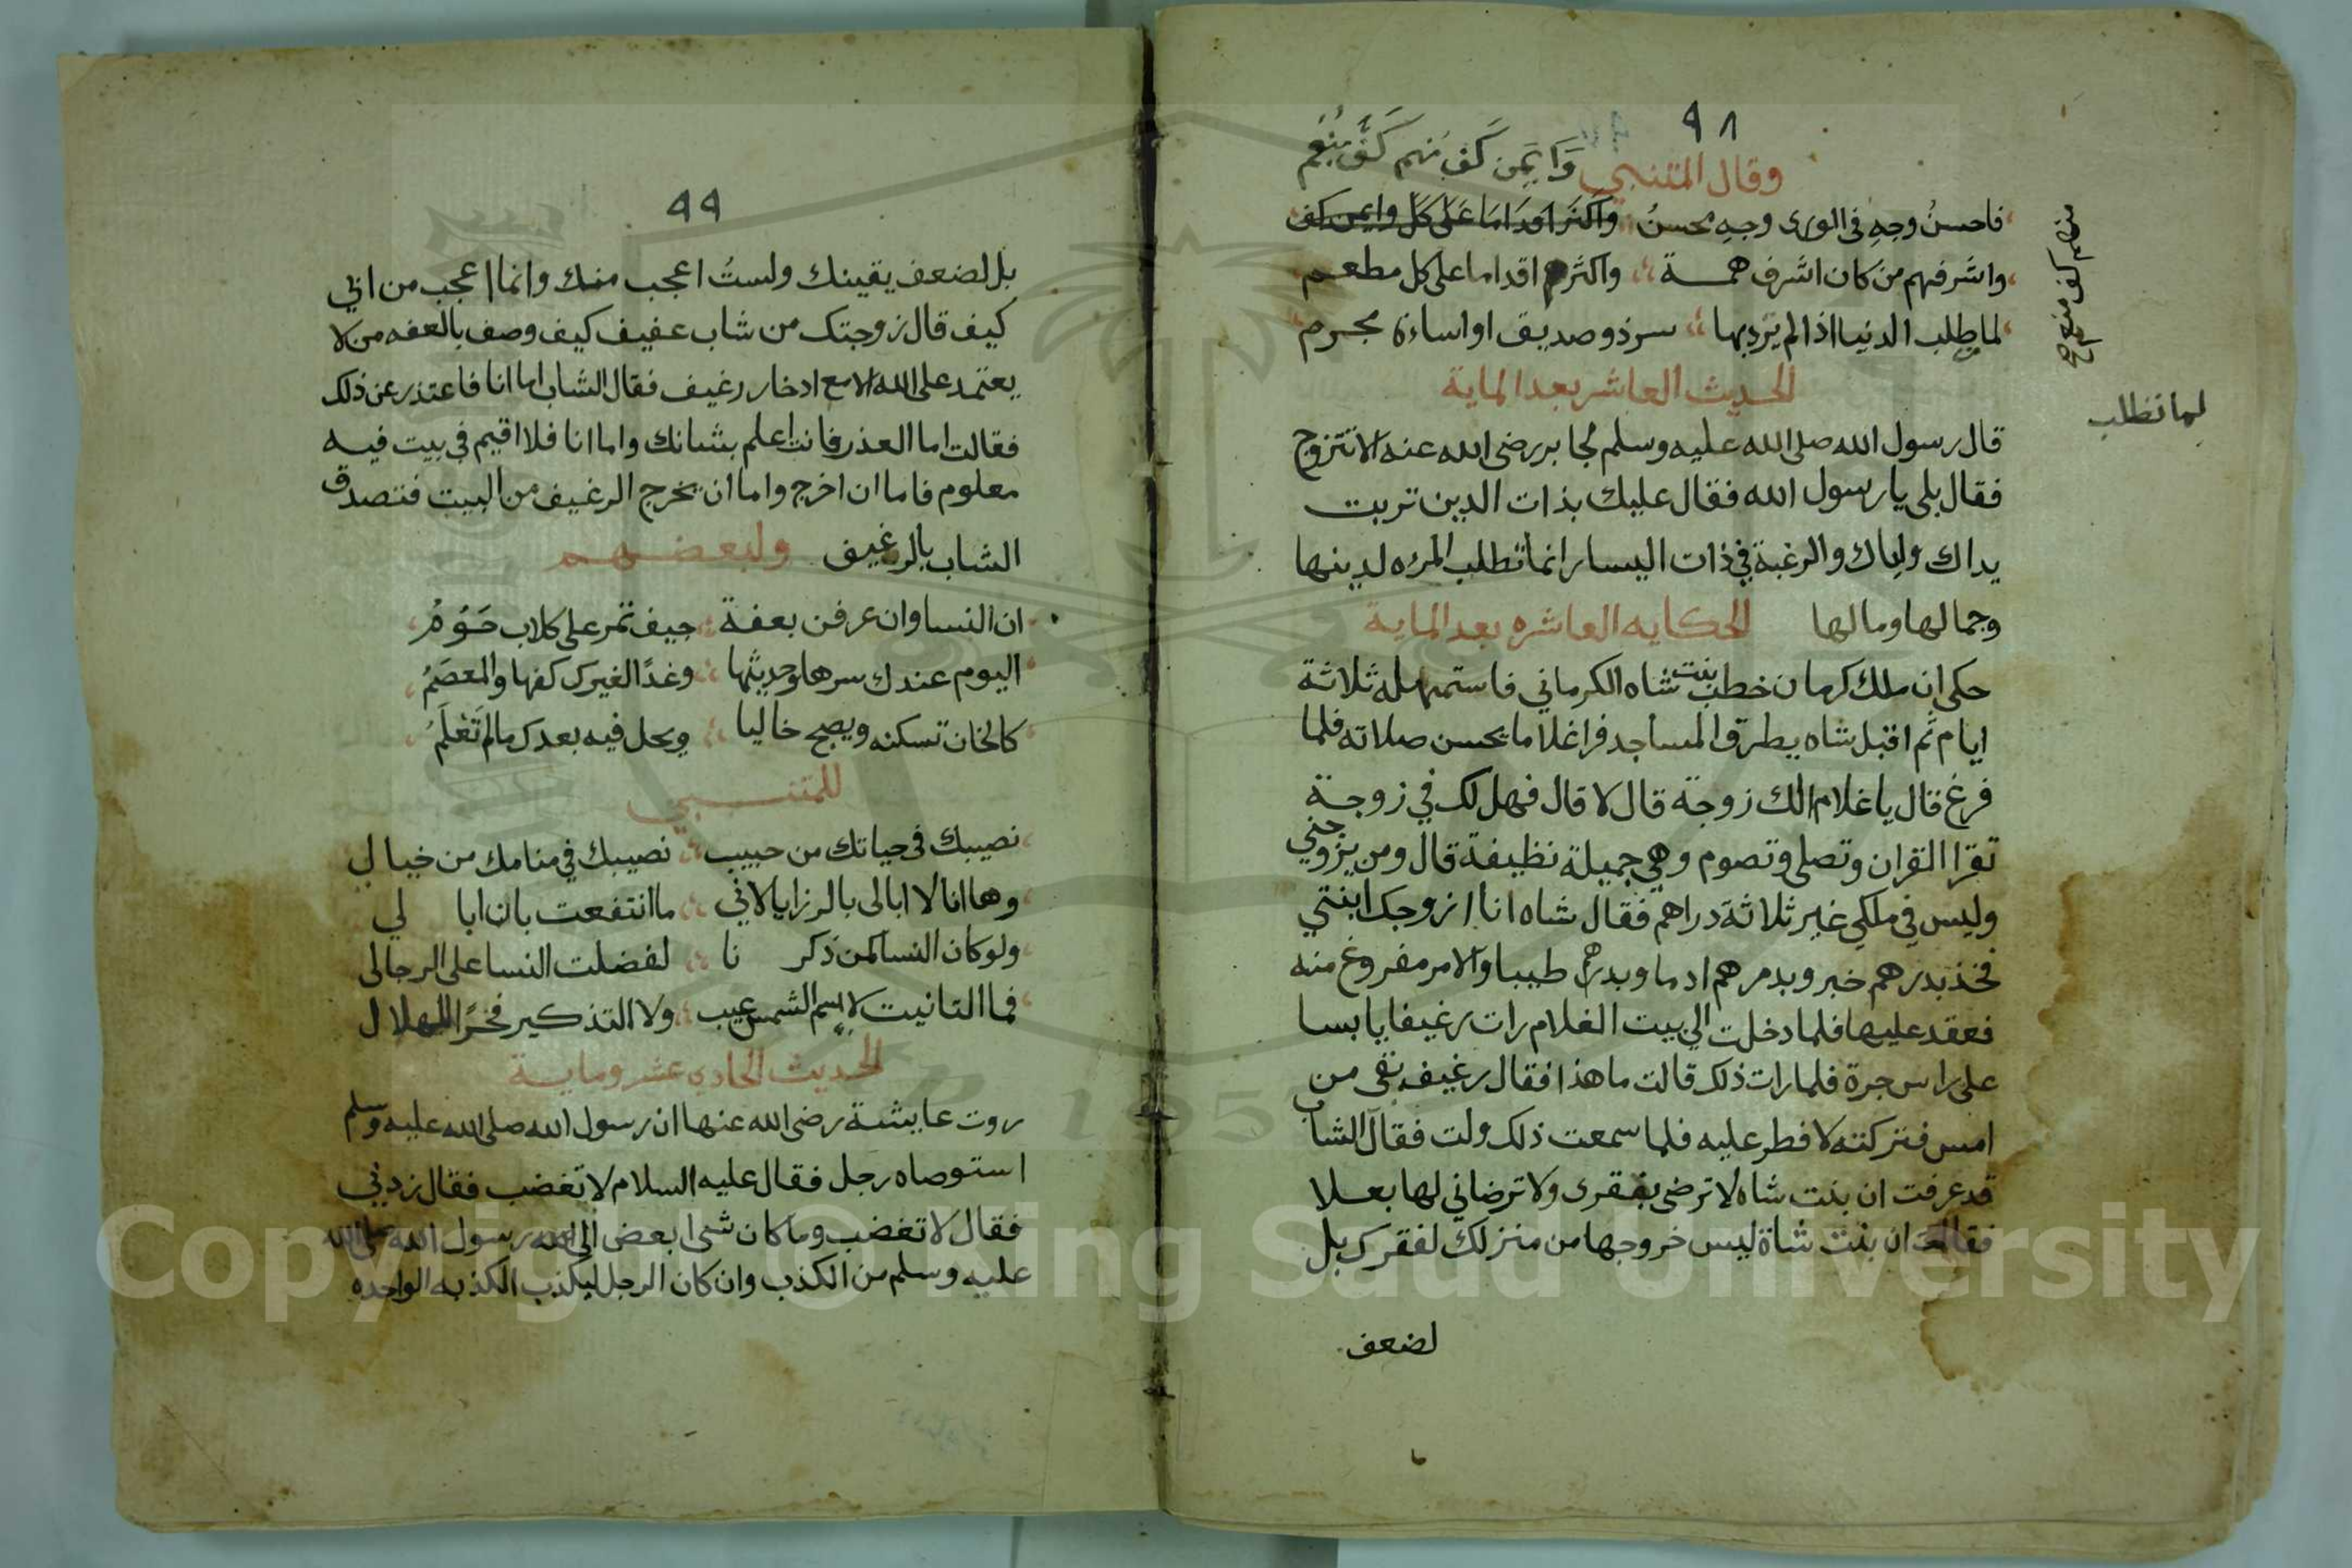 ٩٨
وقال المتنبي وَايمَن كَفٍ مِنهم كَفُّ مُنْعِمِ
فاحسنُ وجهٍ في الورى وجهِ محسنٌ واكثَر اقدَامَا عَلى كل وايمن كف
واشرفهم من كان اشرف همـــة واكثرهم اقداما على كل مطعــم
لما يطلب الدنيا اذا لم يرد بها سرذو صديق او اساءة مجرم
منهم كف منعم صح
لما تطلب
الحديث العاشر بعد الماية
قال رسول الله صلى الله عليه وسلم لجابر رضى الله عنه الا تتزوج
فقال بلى يا رسول الله فقال عليك بذات الدين تربت
يداك واياك والرغبة في ذات اليسار انما تطلب المرءه لدينها
وجمالها ومالها الحكايه العاشره بعد الماية
حكى ان ملك كرمان خطب بنت شاه الكرماني فاستمهله ثلاثة
ايام ثم اقبل شاه يطرق المساجد فرا غلاما يحسن صلاته فلما
فرغ قال يا غلام الك زوجة قال لا قال فهل لك في زوجــة
تقرا القران وتصلى وتصوم وهي جميلة نظيفة قال ومن يزوجني
وليس في ملكي غير ثلاثة دراهم فقال شاه انا ازوجك ابنتي
فخذ بدرهم خبر وبدرهم ادما وبدرهم طيبا والامر مفروغ منه
فعقد عليها فلما دخلت الي بيت الغلام رات رغيفا يابسا
على راس جرة فلما رات ذلك قالت ما هذا فقال رغيف بقى من
امس فتركته لافطر عليه فلما سمعت ذلك ولت فقال الشاب
قد عرفت ان بنت شاه لا ترضى بفقرى ولا ترضاني لها بعـلا
فقالت ان بنت شاة ليس خروجها من منزلك لفقرك بل
لضعف
٩٩
بل لضعف يقينك ولستُ اعجب منك وانما اعجب من ابي
كيف قال زوجتك من شاب عفيف كيف وصف بالعفه من لا
يعتمد على الله الا مع ادخار رغيف فقال الشاب اما انا فاعتذر عن ذلك
فقالت اما العذر فانت اعلم بشانك واما انا فلا اقيم في بيت فيه
معلوم فاما ان اخرج واما ان يخرج الرغيف من البيت فتصدق
الشاب بالرغيف ولبعضــهــم
ان النسا وان عرفن بعفة جيف تمر على كلاب حَوَّمُ
اليوم عندك سرها وحديثها وغدًا الغيرك كفها والمعصَمُ
كالخان تسكنه ويصبح خاليا ويحل فيه بعدك مالم تَعْلَمُ
للمتنــــبي
نصيبك في حياتك من حبيب نصيبك في منامك من خيال
وها انا لا ابالى بالرزايا لاني ما انتفعت بان ابا لي
ولو كان النسا كمن ذكر نا لفضلت النسا على الرجالى
فما التانيت لاسم الشمس عيب ولا التذكير فخرًا للهلال
الحديث الحادي عشر ومايـــة
روت عايشة رضى الله عنها ان رسول الله صلى الله عليه وسلم
استوصاه رجل فقال عليه السلام لا تغضب فقال زدني
فقال لا تغضب وما كان شى ابعض الي رسول الله صلى الله
عليه وسلم من الكذب وان كان الرجل ليكذب الكذبه الواحده
Copyright © King Saud University